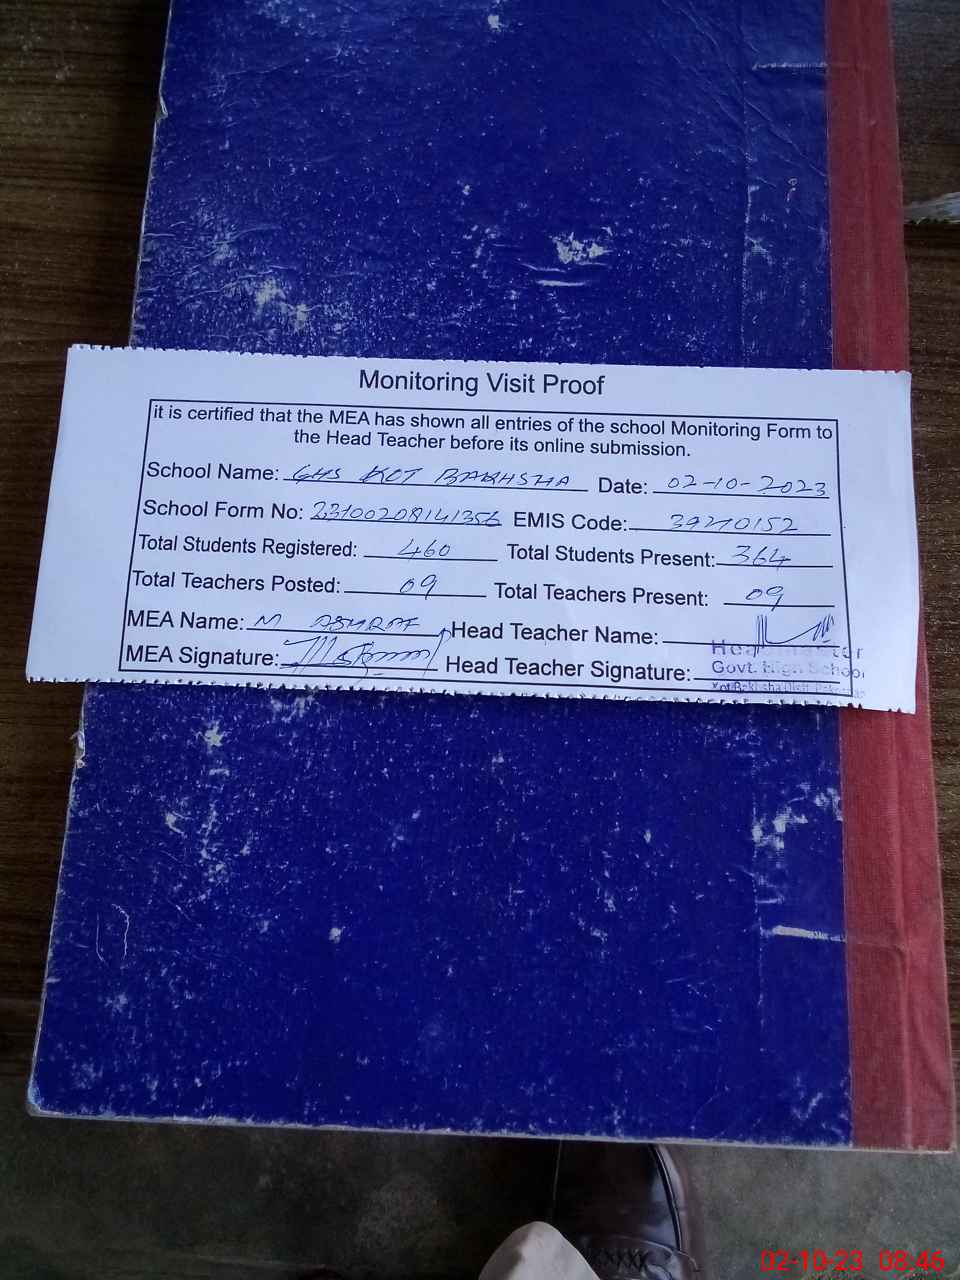 Monitoring Visit Proof
it is certified that the MEA has shown all entries of the school Monitoring Form to
the Head Teacher before its online submission.
School Name: GHS KOT BAKHSHA Date: 02-10-2023
School Form No: 23100208141356 EMIS Code: 39210152
Total Students Registered: 460 Total Students Present: 364
Total Teachers Posted: 09 Total Teachers Present: 09
MEA Name: M ASHRAF Head Teacher Name:
MEA Signature: Head Teacher Signature:
Headmaster
Govt. High School
Kot Bakhsha Distt.
02-10-23 08:46